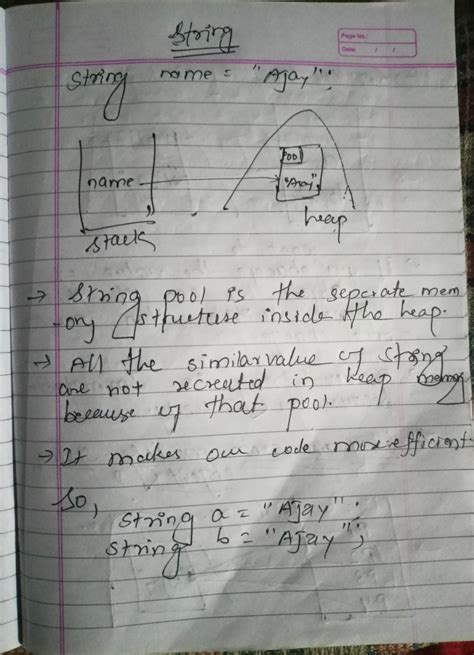 Page No.:
Date: / /
String
String name = "Ajay";
Pool
name
"Ajay"
stack
heap
→ String pool is the seperate mem
-ory structure inside the heap.
→ All the similar value of string
are not recreated in heap memory
because of that pool.
→ It makes our code more efficient.
So,
String a = "Ajay";
String b = "Ajay";